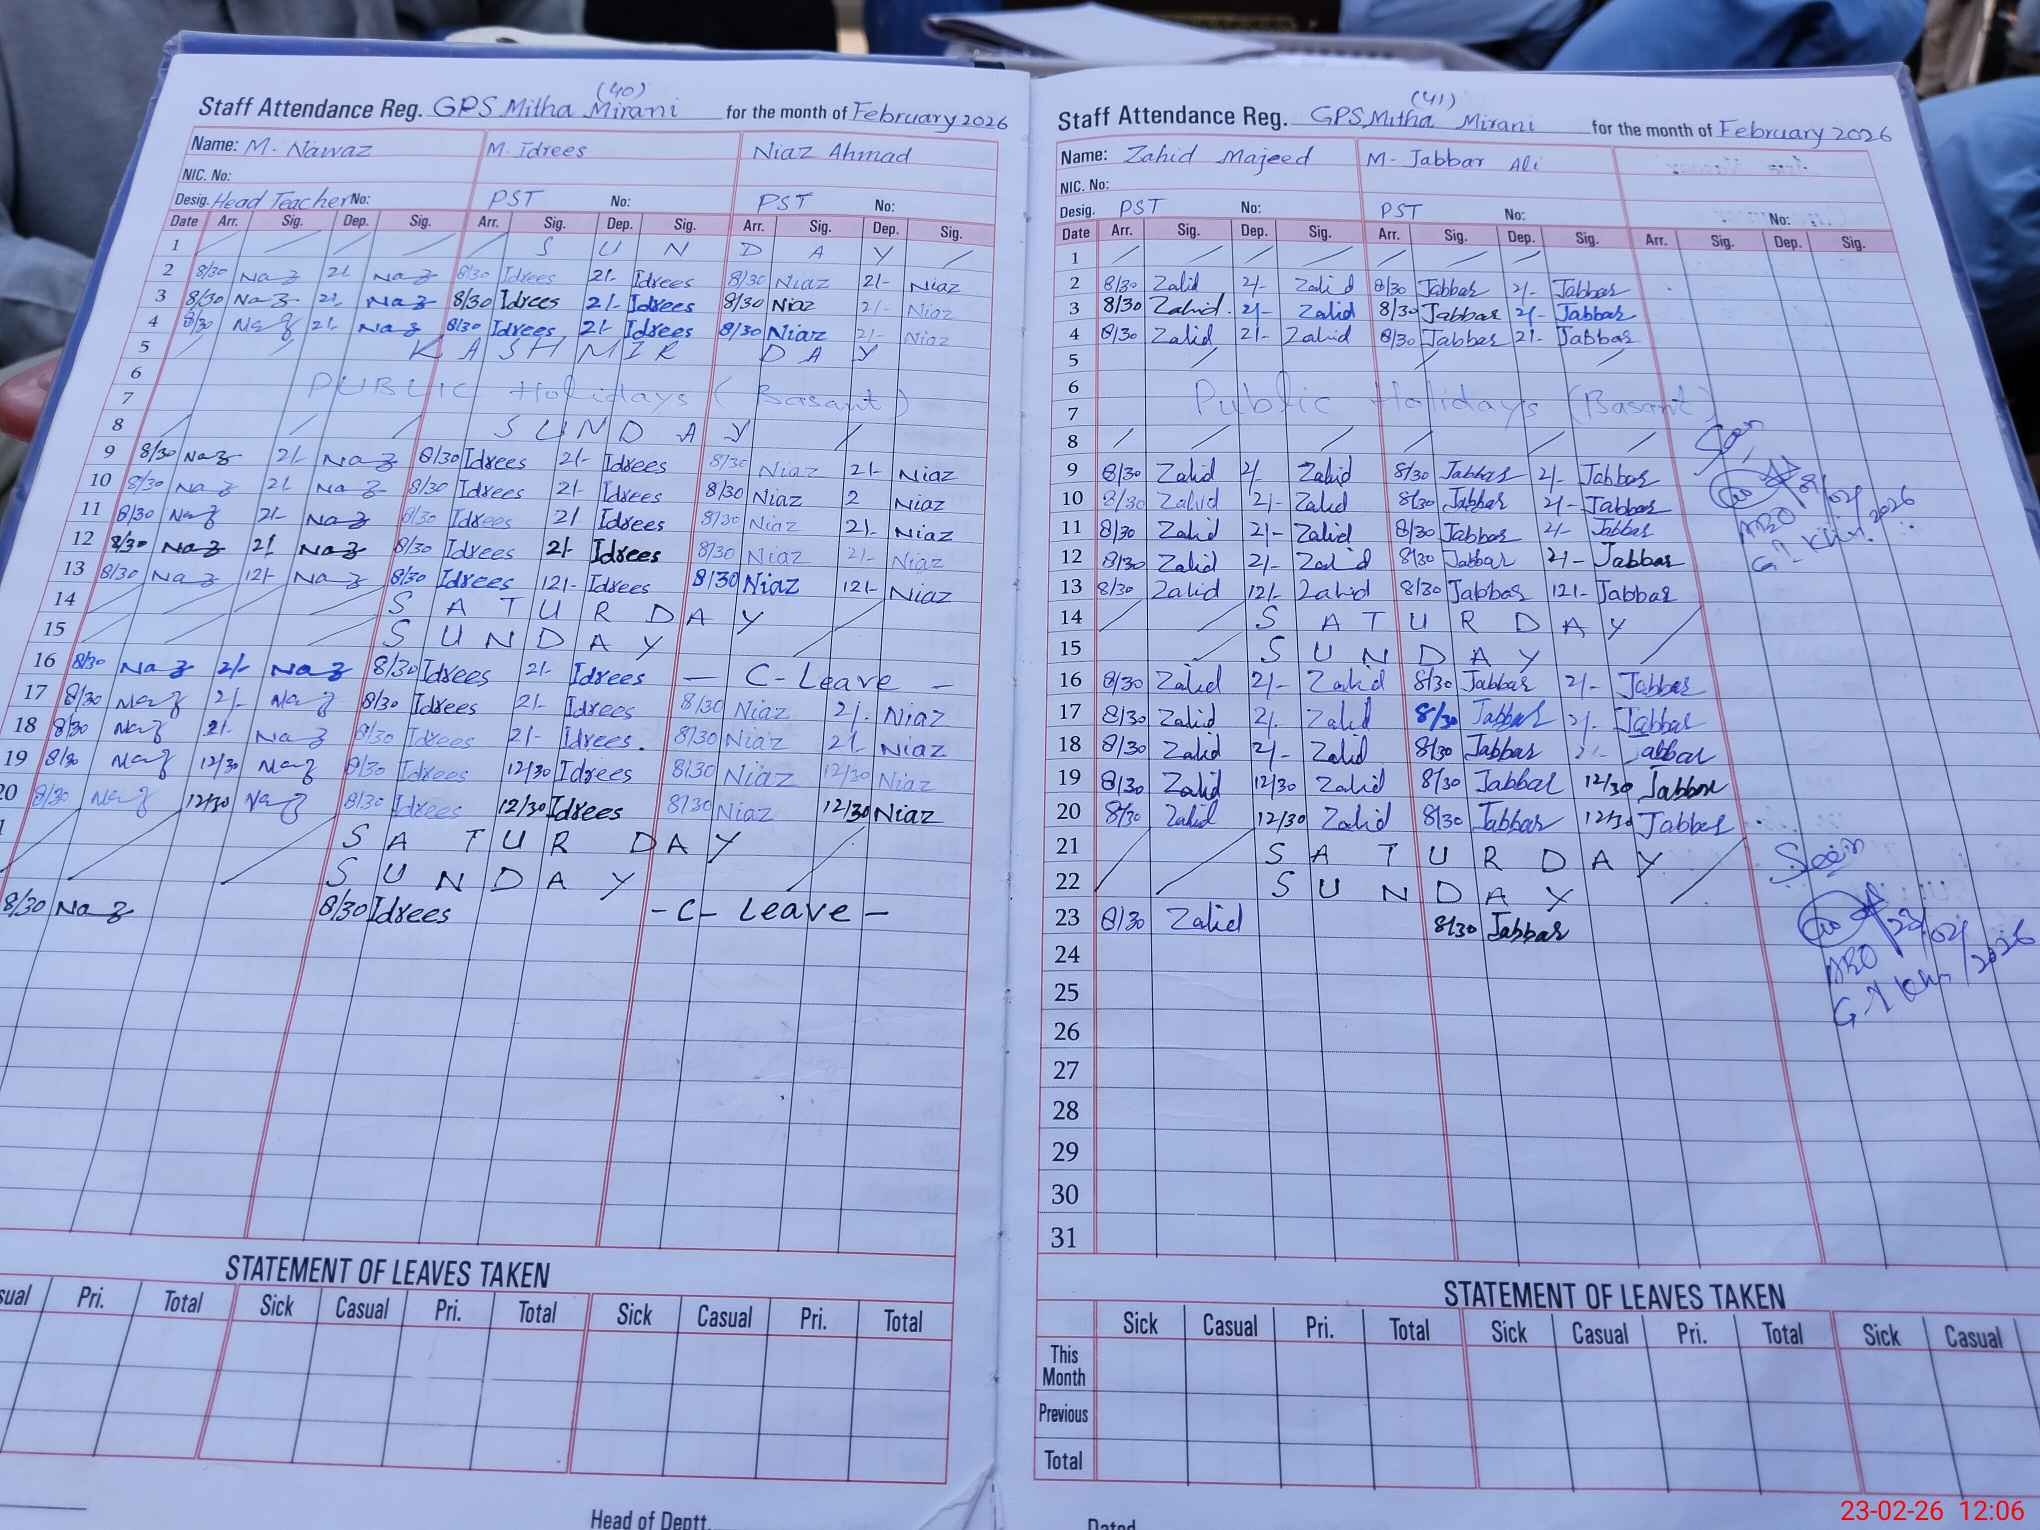 (40)
Staff Attendance Reg. GPS Mitha Mirani for the month of February 2026
Name: M. Nawaz M. Idrees Niaz Ahmad
NIC. No:
Desig. Head Teacher No: PST No: PST No:
Date Arr. Sig. Dep. Sig. Arr. Sig. Dep. Sig. Arr. Sig. Dep. Sig.
1 S U N D A Y
2 8/30 Naz 2/- Naz 8/30 Idrees 2/- Idrees 8/30 Niaz 2/- Niaz
3 8/30 Naz 2/- Naz 8/30 Idrees 2/- Idrees 8/30 Niaz 2/- Niaz
4 8/30 Naz 2/- Naz 8/30 Idrees 2/- Idrees 8/30 Niaz 2/- Niaz
5 K A S H M I R D A Y
6
7 PUBLIC Holidays (Basant)
8 S U N D A Y
9 8/30 Naz 2/- Naz 8/30 Idrees 2/- Idrees 8/30 Niaz 2/- Niaz
10 8/30 Naz 2/- Naz 8/30 Idrees 2/- Idrees 8/30 Niaz 2 Niaz
11 8/30 Naz 2/- Naz 8/30 Idrees 2/- Idrees 8/30 Niaz 2/- Niaz
12 8/30 Naz 2/- Naz 8/30 Idrees 2/- Idrees 8/30 Niaz 2/- Niaz
13 8/30 Naz 12/- Naz 8/30 Idrees 12/- Idrees 8/30 Niaz 12/- Niaz
14 S A T U R D A Y
15 S U N D A Y
16 8/30 Naz 2/- Naz 8/30 Idrees 2/- Idrees — C-Leave —
17 8/30 Naz 2/- Naz 8/30 Idrees 2/- Idrees 8/30 Niaz 2/- Niaz
18 8/30 Naz 2/- Naz 8/30 Idrees 2/- Idrees. 8/30 Niaz 2/- Niaz
19 8/30 Naz 12/30 Naz 8/30 Idrees 12/30 Idrees 8/30 Niaz 12/30 Niaz
20 8/30 Naz 12/30 Naz 8/30 Idrees 12/30 Idrees 8/30 Niaz 12/30 Niaz
S A T U R D A Y
S U N D A Y
8/30 Naz 8/30 Idrees - C- Leave -
STATEMENT OF LEAVES TAKEN
sual Pri. Total Sick Casual Pri. Total Sick Casual Pri. Total
Head of Deptt.
(41)
Staff Attendance Reg. GPS Mitha Mirani for the month of February 2026
Name: Zahid Majeed M. Jabbar Ali
NIC. No:
Desig. PST No: PST No: No:
Date Arr. Sig. Dep. Sig. Arr. Sig. Dep. Sig. Arr. Sig. Dep. Sig.
1
2 8/30 Zahid 2/- Zahid 8/30 Jabbar 2/- Jabbar
3 8/30 Zahid 2/- Zahid 8/30 Jabbar 2/- Jabbar
4 8/30 Zahid 2/- Zahid 8/30 Jabbar 2/- Jabbar
5
6
7 Public Holidays (Basant)
8
Seen
9 8/30 Zahid 2/- Zahid 8/30 Jabbar 2/- Jabbar
10 8/30 Zahid 2/- Zahid 8/30 Jabbar 2/- Jabbar
11 8/30 Zahid 2/- Zahid 8/30 Jabbar 2/- Jabbar
12 8/30 Zahid 2/- Zahid 8/30 Jabbar 2/- Jabbar
13 8/30 Zahid 12/- Zahid 8/30 Jabbar 12/- Jabbar
14 S A T U R D A Y
15 S U N D A Y
16 8/30 Zahid 2/- Zahid 8/30 Jabbar 2/- Jabbar
17 8/30 Zahid 2/- Zahid 8/30 Jabbar 2/- Jabbar
18 8/30 Zahid 2/- Zahid 8/30 Jabbar 2/- Jabbar
19 8/30 Zahid 12/30 Zahid 8/30 Jabbar 12/30 Jabbar
20 8/30 Zahid 12/30 Zahid 8/30 Jabbar 12/30 Jabbar
21 S A T U R D A Y
22 S U N D A Y
Seen
23 8/30 Zahid 8/30 Jabbar
23/02/2026
24
25
26
27
28
29
30
31
STATEMENT OF LEAVES TAKEN
Sick Casual Pri. Total Sick Casual Pri. Total Sick Casual
This Month
Previous
Total
Dated
23-02-26 12:06